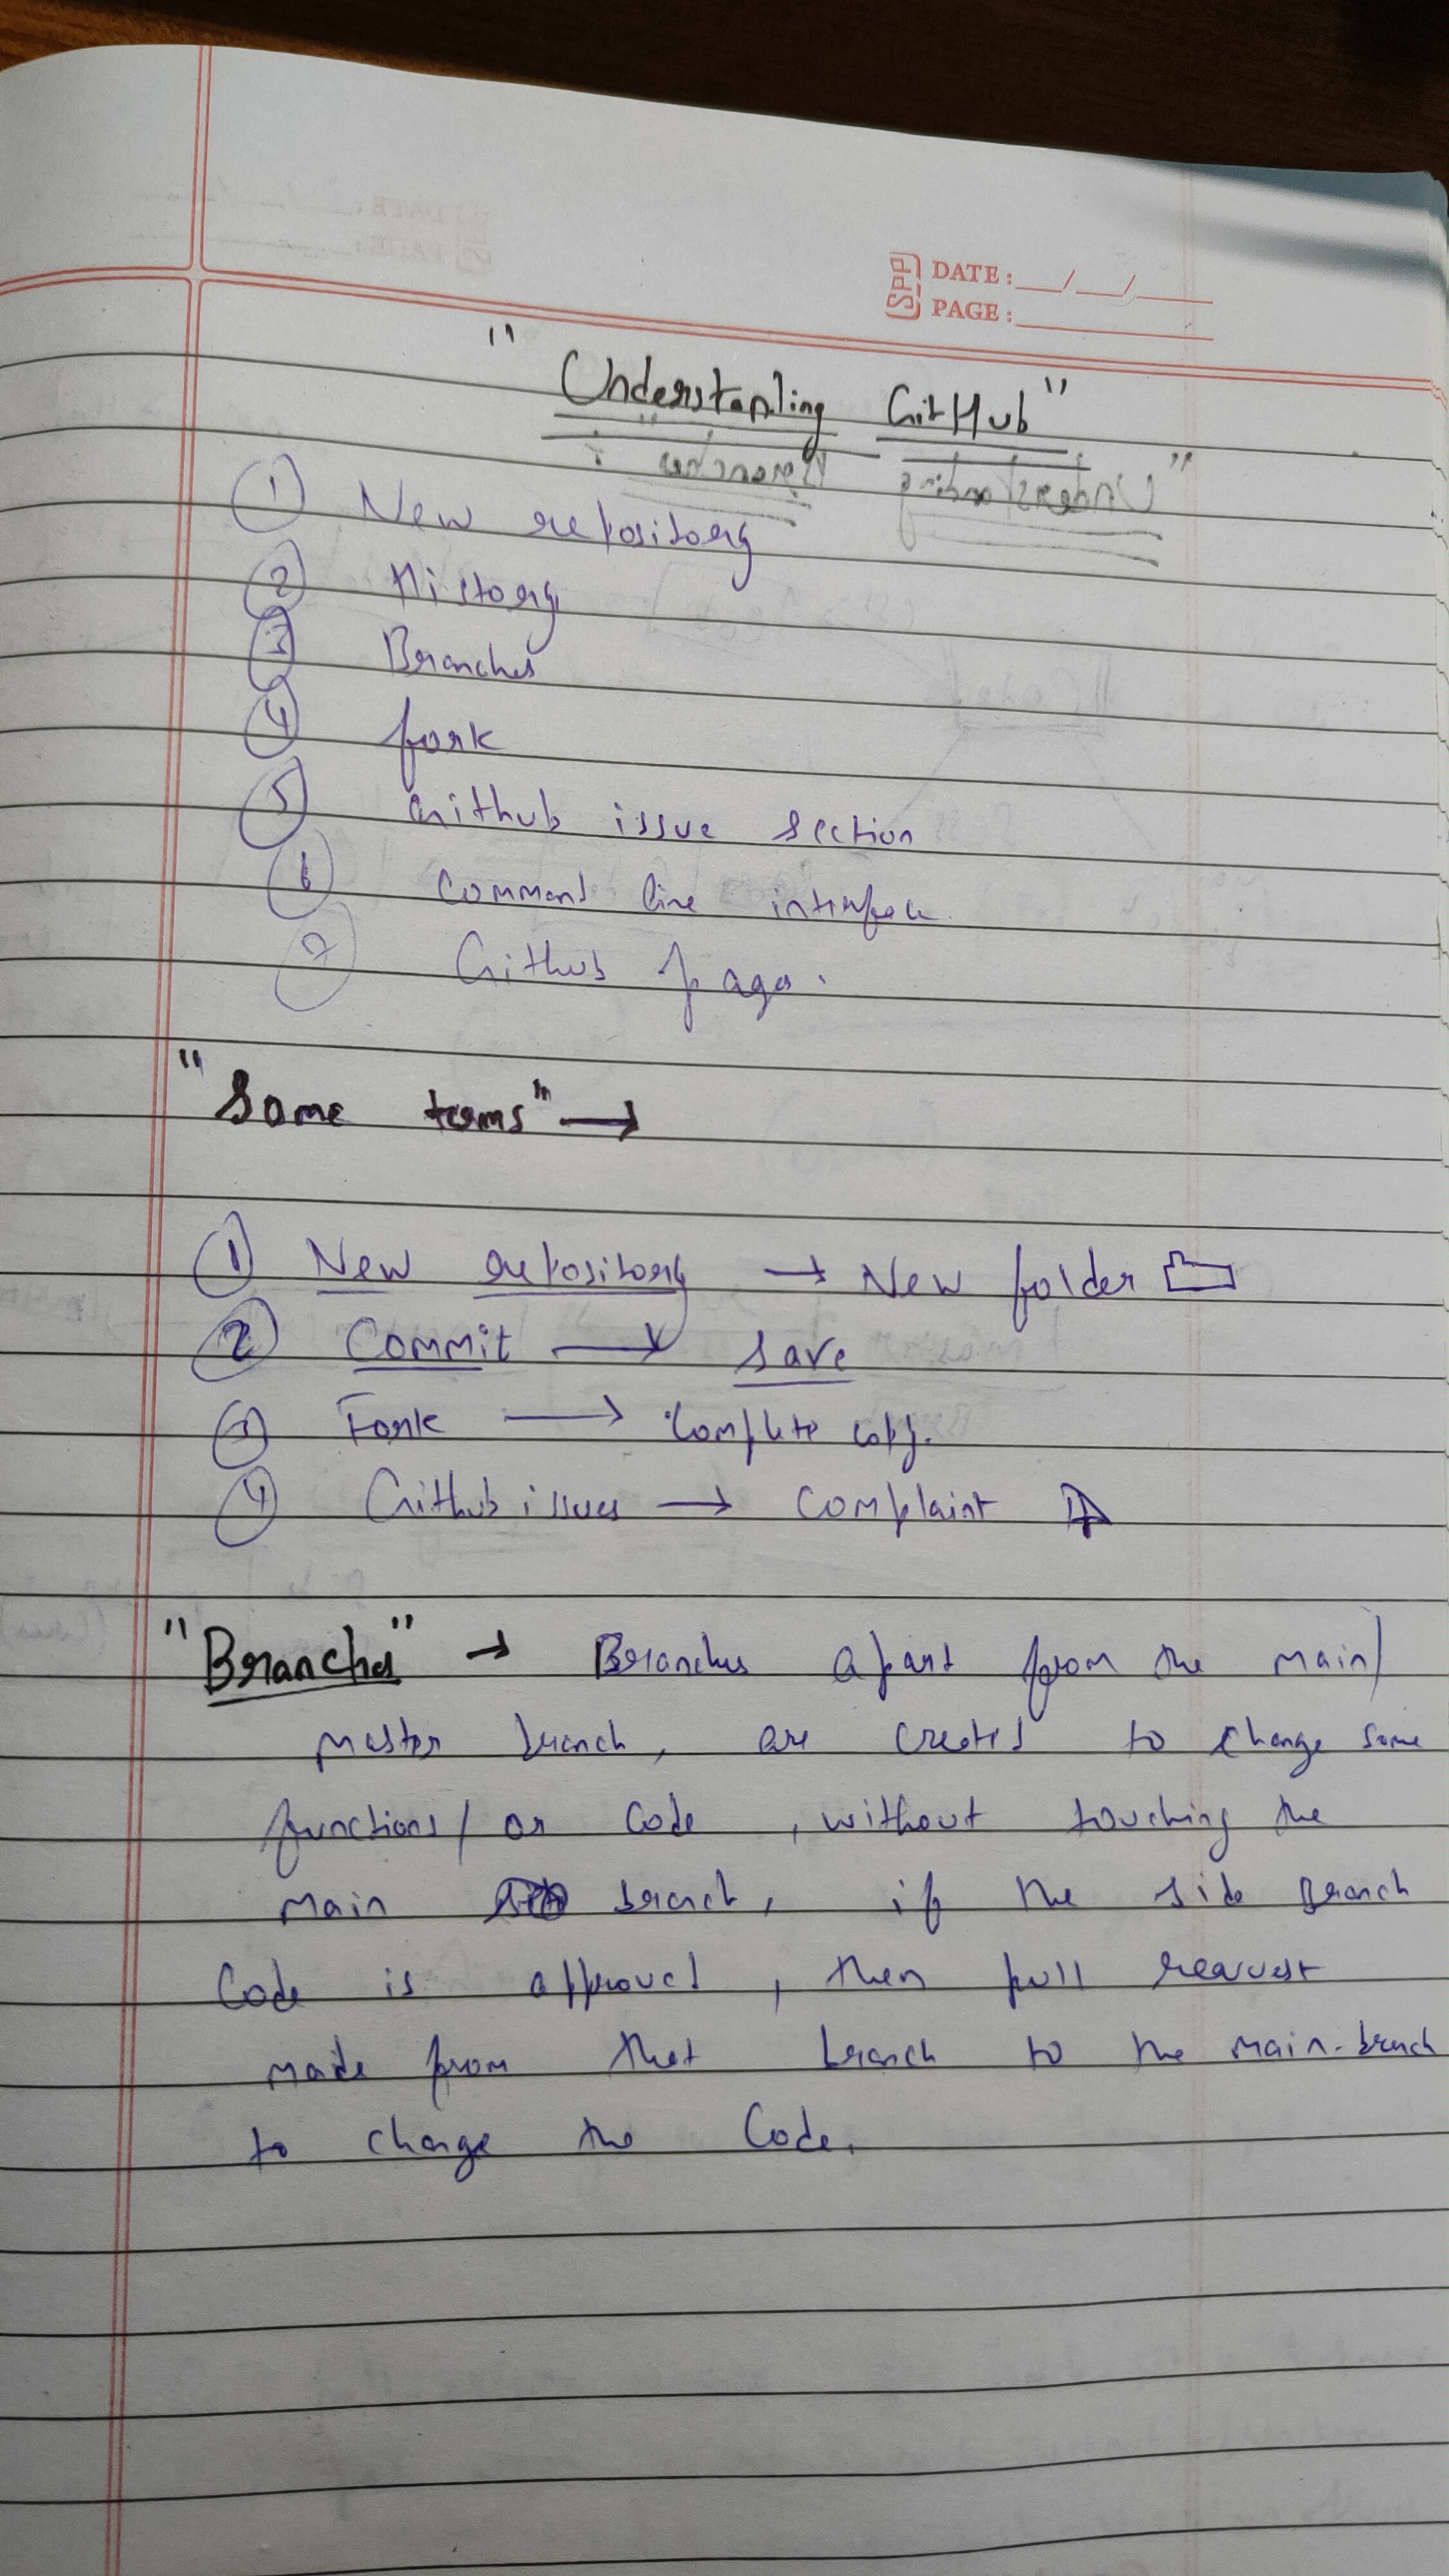 SPP DATE: __/__/____
PAGE: ________
"Understanding GitHub"
① New repository
② History
③ Branches
④ fork
⑤ Github issue section
⑥ command line interface
⑦ Github pages.
"Some terms" →
① New repository → New folder
② Commit → save
③ Fork → complete copy.
④ Github issues → complaint
"Branches" → Branches apart from the main/
master branch, are created to change some
functions/ or code , without touching the
main branch, if the side Branch
Code is approved , then pull request
made from that branch to the main-branch
to change the Code.